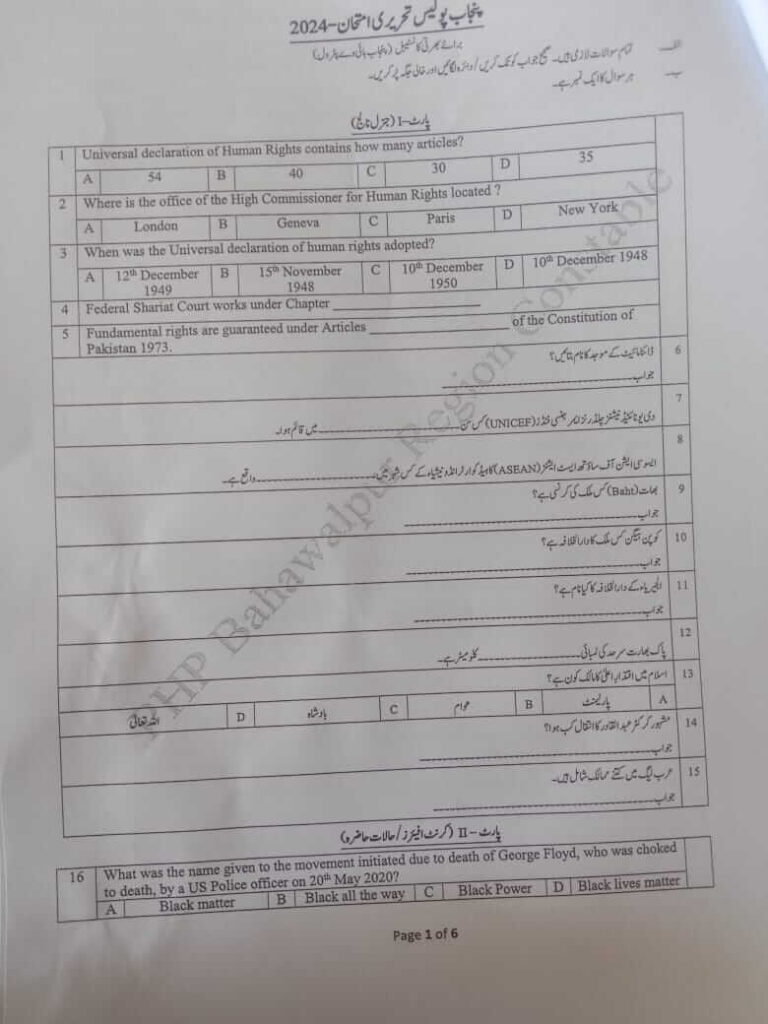 پنجاب پولیس تحریری امتحان-2024
برائے بھرتی کانسٹیبل (پنجاب ہائی وے پٹرول)
الف۔ تمام سوالات لازمی ہیں۔ صحیح جواب کو ٹک کریں/دائرہ لگائیں اور خالی جگہ پر کریں۔
ب۔ ہر سوال کا ایک نمبر ہے۔
پارٹ-I (جنرل نالج)
1 Universal declaration of Human Rights contains how many articles?
A 54 B 40 C 30 D 35
2 Where is the office of the High Commissioner for Human Rights located ?
A London B Geneva C Paris D New York
3 When was the Universal declaration of human rights adopted?
A 12th December 1949 B 15th November 1948 C 10th December 1950 D 10th December 1948
4 Federal Shariat Court works under Chapter ____________
5 Fundamental rights are guaranteed under Articles ____________ of the Constitution of
Pakistan 1973.
6 ڈائنامائیٹ کے موجد کا نام بتائیں؟
جواب ____________
7
دی یونائیٹڈ نیشنز چلڈرنز ایمرجنسی فنڈز (UNICEF) کس سن ____________ میں قائم ہوا۔
8
ایسوسی ایشن آف ساؤتھ ایسٹ ایشنز (ASEAN) کا ہیڈ کوارٹر انڈونیشیاء کے کس شہر میں ____________ واقع ہے۔
9 بھات (Baht) کس ملک کی کرنسی ہے؟
جواب ____________
10 کوپن ہیگن کس ملک کا دارالخلافہ ہے؟
جواب ____________
11 الجیریاء کے دارالخلافہ کا کیا نام ہے؟
جواب ____________
12
پاک بھارت سرحد کی لمبائی ____________ کلومیٹر ہے۔
13 اسلام میں اقتدار اعلیٰ کا مالک کون ہے؟
A پارلیمنٹ B عوام C بادشاہ D اللہ تعالیٰ
14 مشہور کرکٹر عبدالقادر کا انتقال کب ہوا؟
جواب ____________
15 عرب لیگ میں کتنے ممالک شامل ہیں۔
جواب ____________
پارٹ-II (کرنٹ افیئرز/حالات حاضرہ)
16 What was the name given to the movement initiated due to death of George Floyd, who was choked
to death, by a US Police officer on 20th May 2020?
A Black matter B Black all the way C Black Power D Black lives matter
Page 1 of 6
PHP Bahawalpur Region Constable